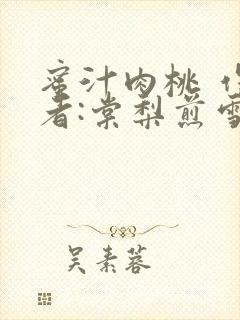 蜜汁肉桃
者:棠梨煎雪
吴素蓉